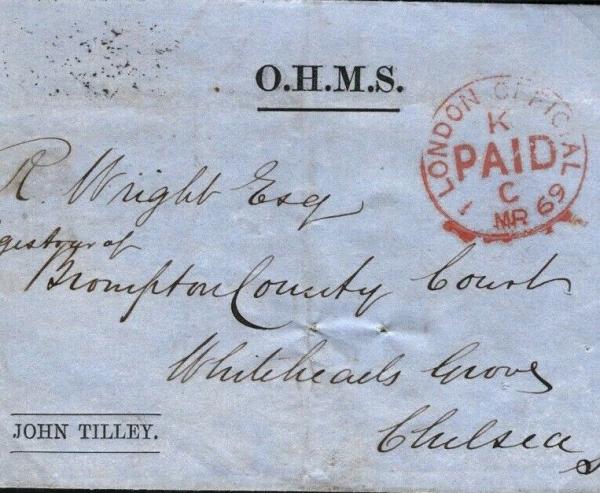 O.H.M.S.
LONDON OFFICIAL
K
PAID
C
1 MR 69
R. Wright Esq
Brompton County Court
Whiteheads Grove
Chelsea
JOHN TILLEY.